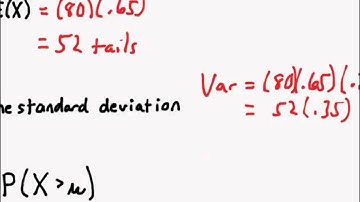 E(X) = (80)(.65)
= 52 tails
Var = (80)(.65)(.
= 52(.35)
he standard deviation
P(X>μ)